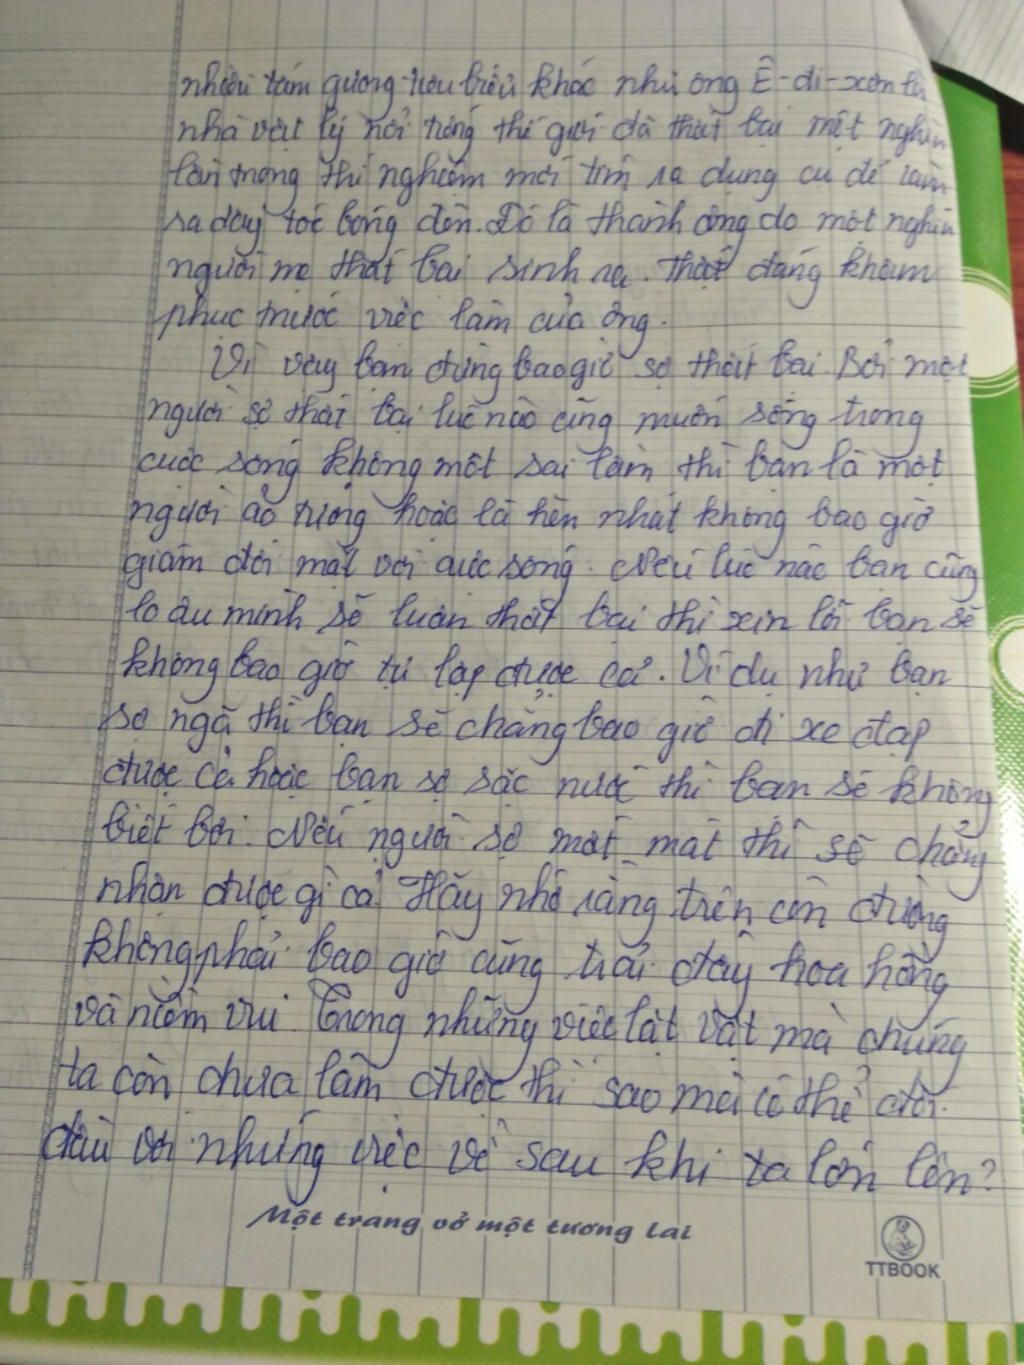 nhiều tấm gương tiêu biểu khác như ông Ê-đi-xơn là
nhà vật lý nổi tiếng thế giới đã thất bại một nghìn
lần trong thí nghiệm mới tìm ra dụng cụ để làm
ra dây tóc bóng đèn. Đó là thành công do một nghìn
người mẹ thất bại sinh ra. Thật đáng khâm
phục trước việc làm của ông.
Vì vậy bạn đừng bao giờ sợ thất bại. Bởi một
người sợ thất bại lúc nào cũng muốn sống trong
cuộc sống không một sai lầm thì bạn là một
người ảo tưởng hoặc là hèn nhát không bao giờ
giám đối mặt với cuộc sống. Nếu lúc nào bạn cũng
lo âu mình sẽ luôn thất bại thì xin lỗi bạn sẽ
không bao giờ tự lập được cả. Ví dụ như bạn
sợ ngã thì bạn sẽ chẳng bao giờ đi xe đạp
được cả hoặc bạn sợ sặc nước thì bạn sẽ không
biết bơi. Nếu người sợ mất mát thì sẽ chẳng
nhận được gì cả. Hãy nhớ rằng trên con đường
không phải bao giờ cũng trải đầy hoa hồng
và niềm vui. Trong những việc lặt vặt mà chúng
ta còn chưa làm được thì sao mới có thể đối
đầu với những việc về sau khi ta lớn lên?
Một trang vở một tương lai
TTBOOK